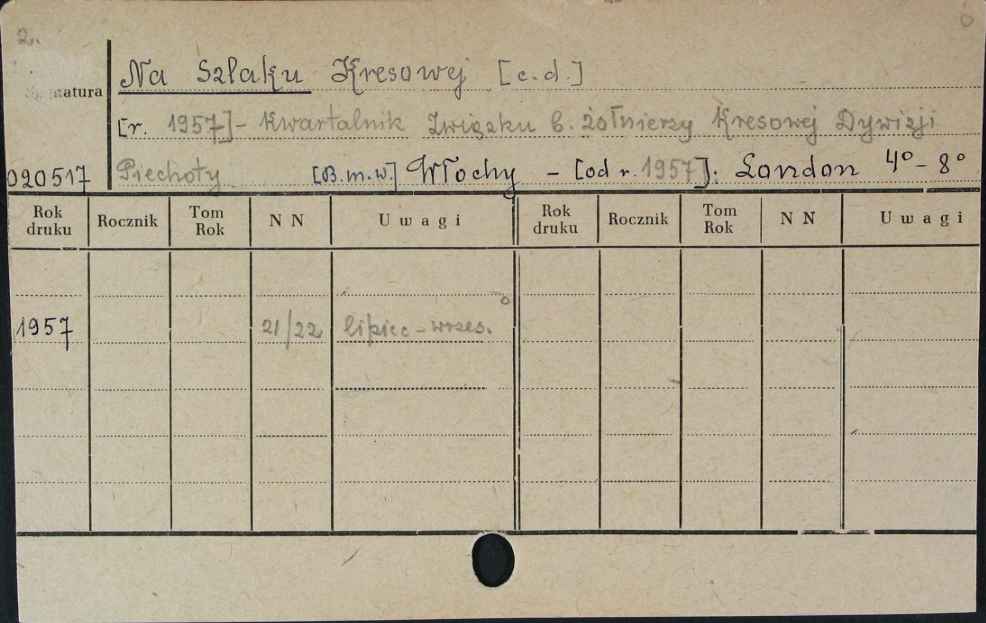 2.
Na Szlaku Kresowej [c.d.]
Sygnatura
[r. 1957] - Kwartalnik Związku b. żołnierzy Kresowej Dywizji
020517 Piechoty [B.m.w.] Włochy - [od r. 1957]: London 4° - 8°
Rok druku Rocznik Tom Rok NN Uwagi Rok druku Rocznik Tom Rok NN Uwagi
1957 21/22 lipiec - wrzes.